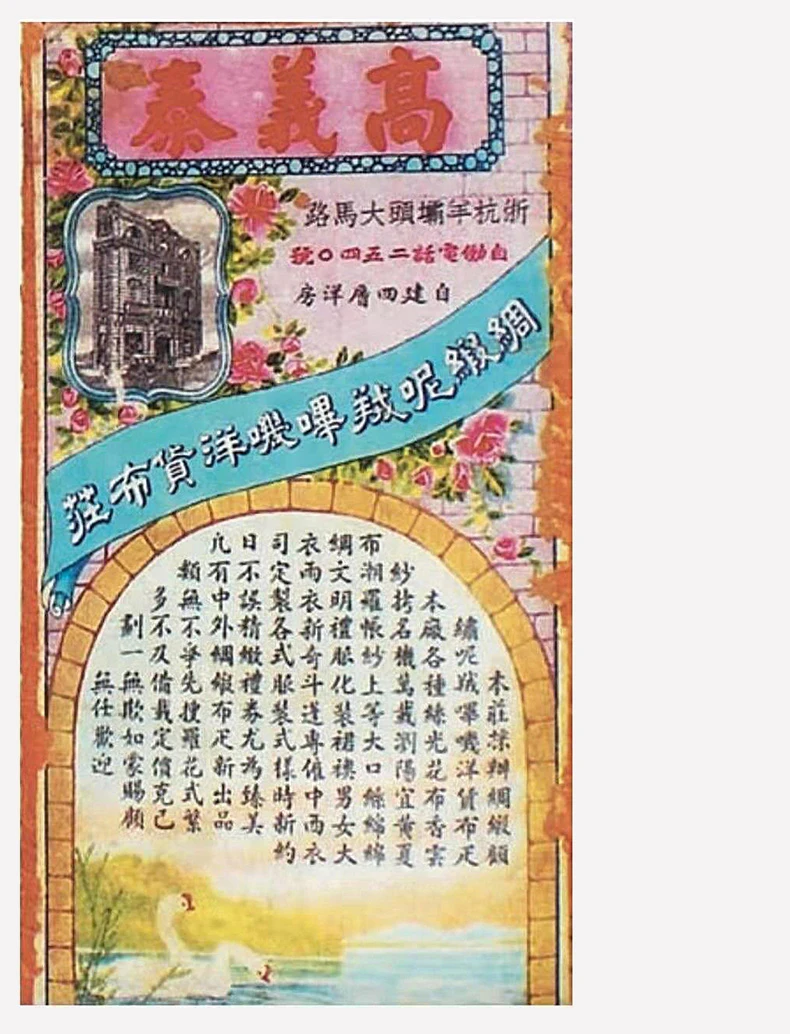 高義泰
浙杭羊壩頭大馬路
自働電話二五四〇號
自建四層洋房
綢緞呢羢嗶嘰洋貨布莊
本莊採辦綢緞顧
繡呢羢嗶嘰洋貨布疋
本廠各種絲光花布香雲
紗拷名機萬載瀏陽宜黃夏
布潮羅帳紗上等大口絲綿綿
綢文明禮服化裝裙襖男女大
衣雨衣新奇斗篷專催中西衣
司定製各式服裝式樣時新約
日不誤精緻禮券尤為臻美
凢有中外綢緞布疋新出品
類無不爭先搜羅花式繁
多不及備載定價克己
劃一無欺如蒙賜顧
無任歡迎